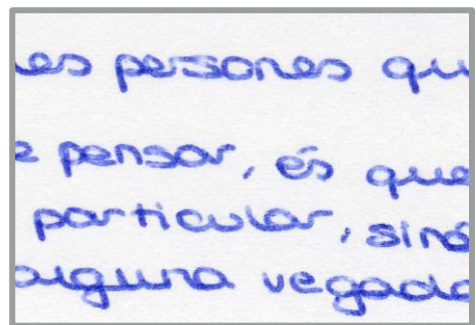 les persones qu
e pensar, és que
particular, sinó
alguna vegada